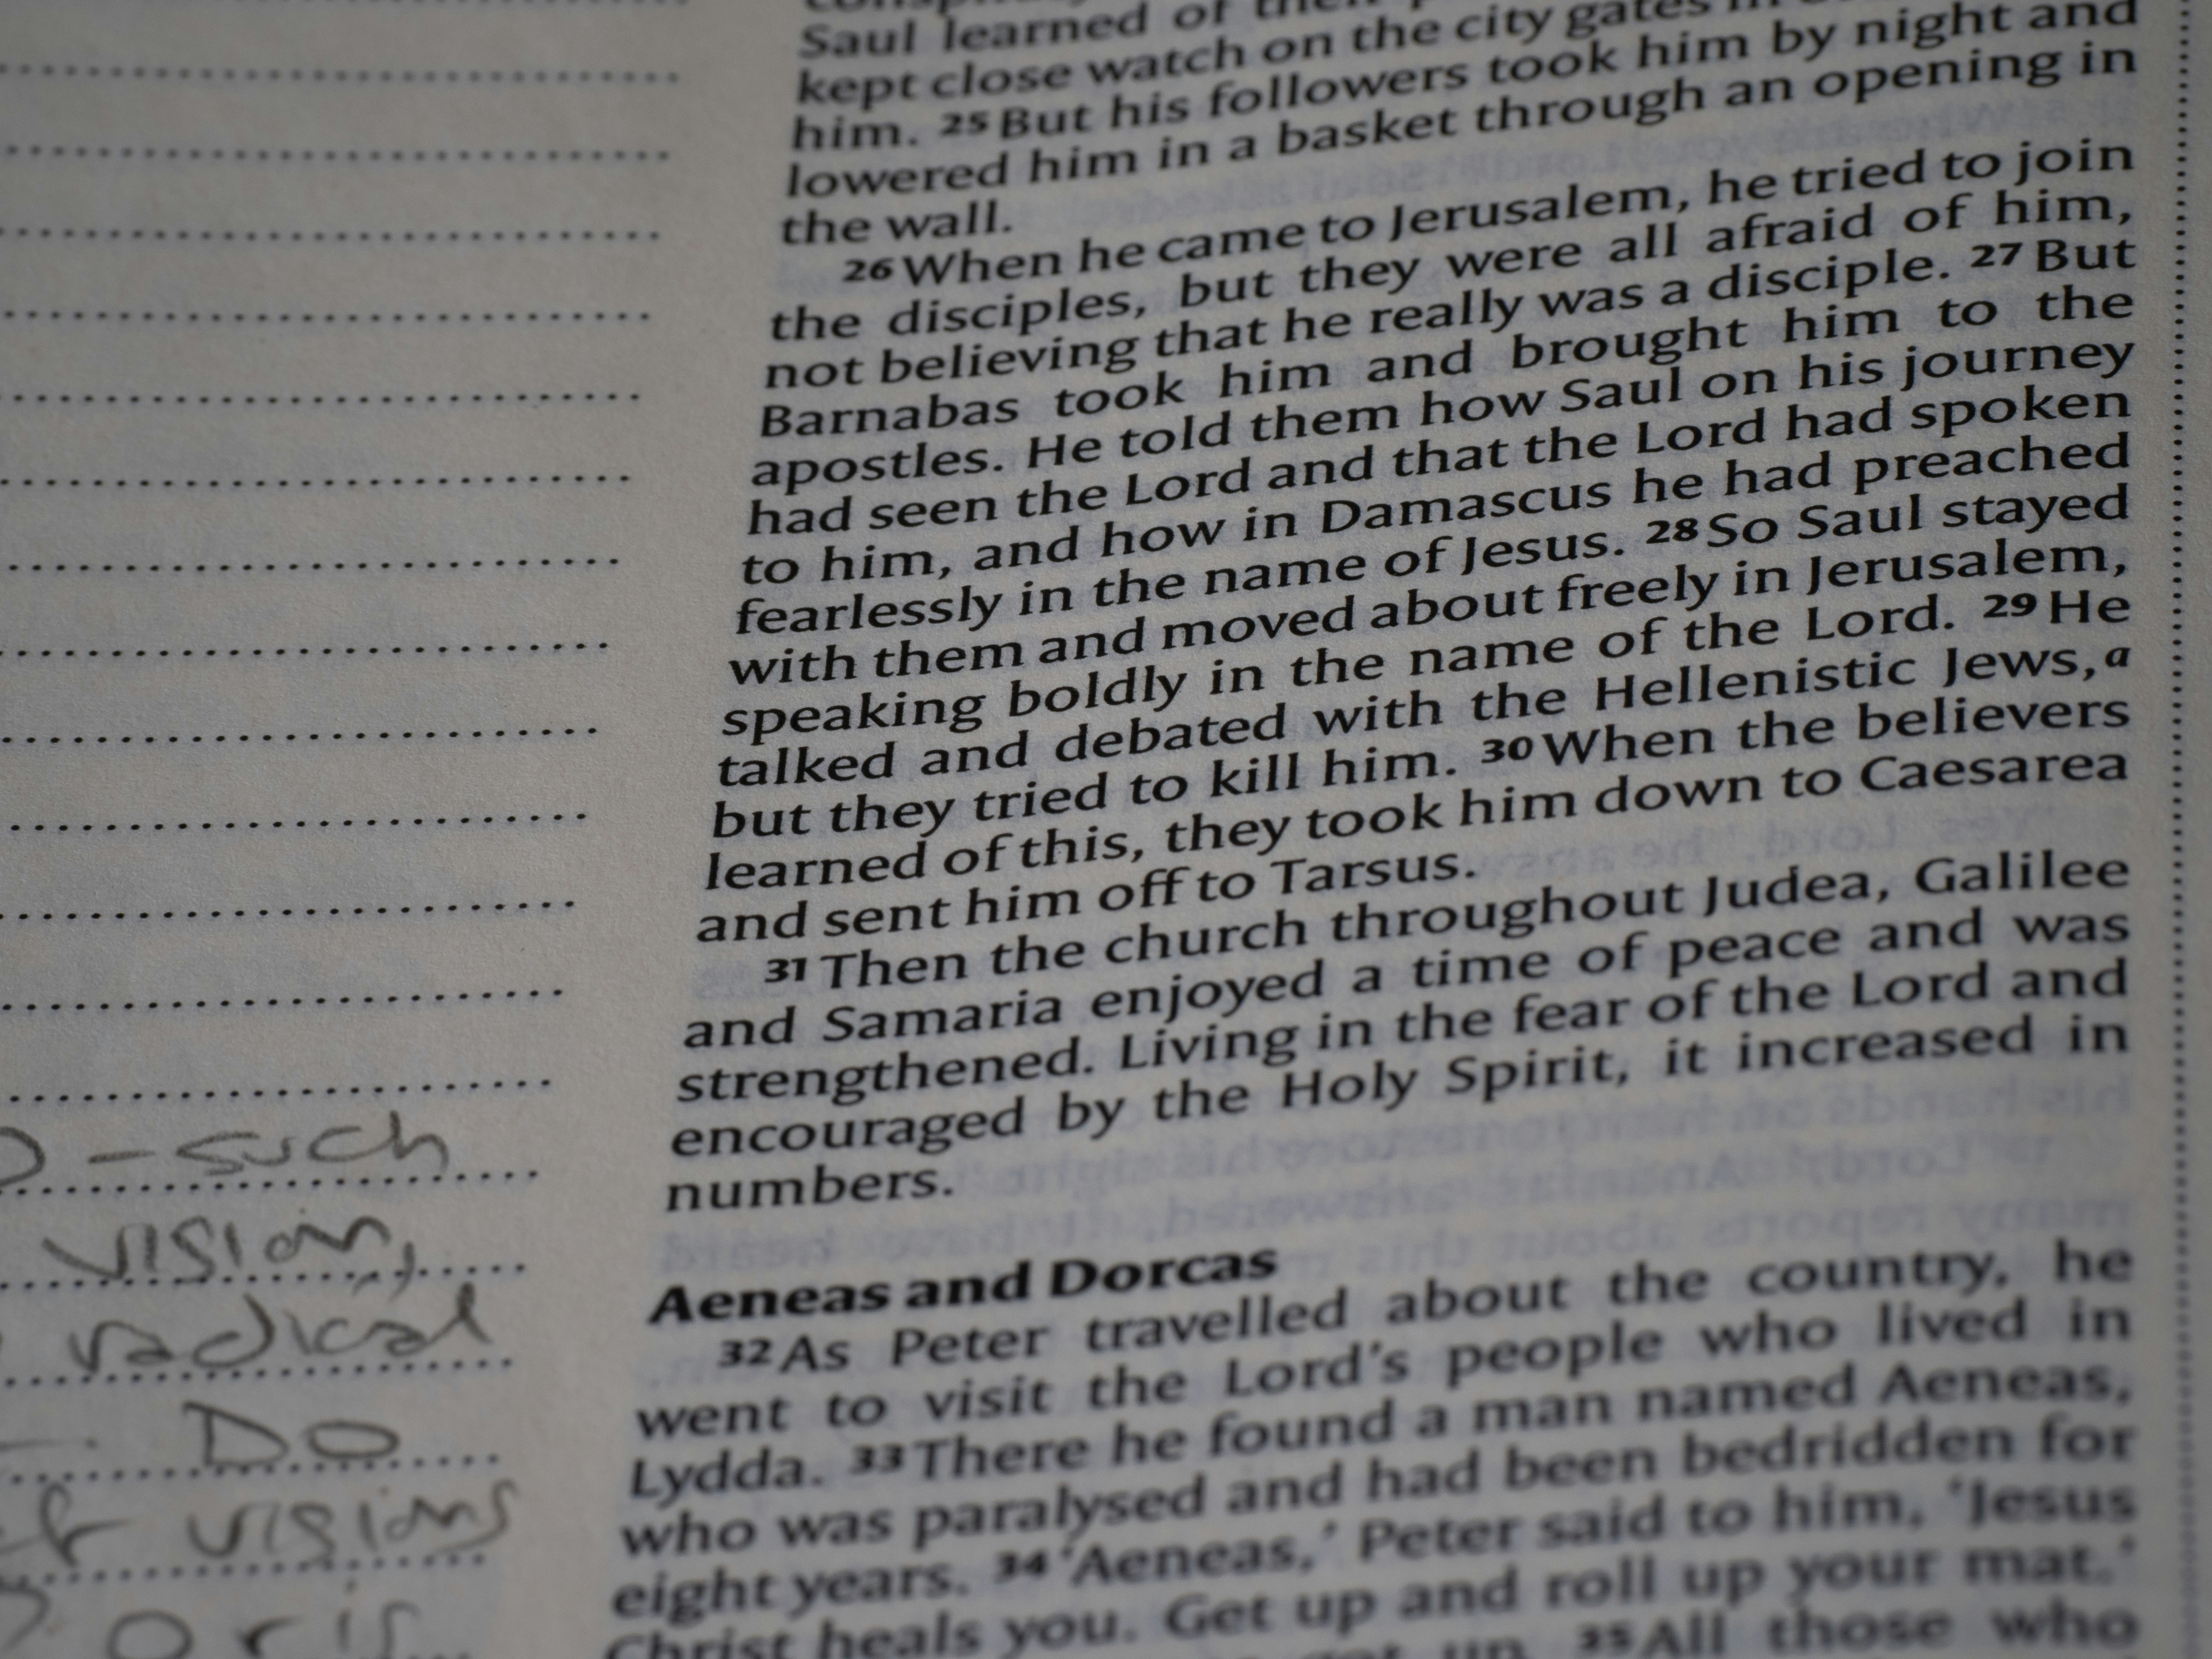 Saul learned of their
kept close watch on the city gates in
him. 25 But his followers took him by night and
lowered him in a basket through an opening in
the wall.
26 When he came to Jerusalem, he tried to join
the disciples, but they were all afraid of him,
not believing that he really was a disciple. 27 But
Barnabas took him and brought him to the
apostles. He told them how Saul on his journey
had seen the Lord and that the Lord had spoken
to him, and how in Damascus he had preached
fearlessly in the name of Jesus. 28 So Saul stayed
with them and moved about freely in Jerusalem,
speaking boldly in the name of the Lord. 29 He
talked and debated with the Hellenistic Jews,a
but they tried to kill him. 30 When the believers
learned of this, they took him down to Caesarea
and sent him off to Tarsus.
31 Then the church throughout Judea, Galilee
and Samaria enjoyed a time of peace and was
strengthened. Living in the fear of the Lord and
encouraged by the Holy Spirit, it increased in
numbers.
Aeneas and Dorcas
32 As Peter travelled about the country, he
went to visit the Lord's people who lived in
Lydda. 33 There he found a man named Aeneas,
who was paralysed and had been bedridden for
eight years. 34 'Aeneas,' Peter said to him, 'Jesus
Christ heals you. Get up and roll up your mat.'
up. 35 All those who
- such
vision,
radical
DO
visions